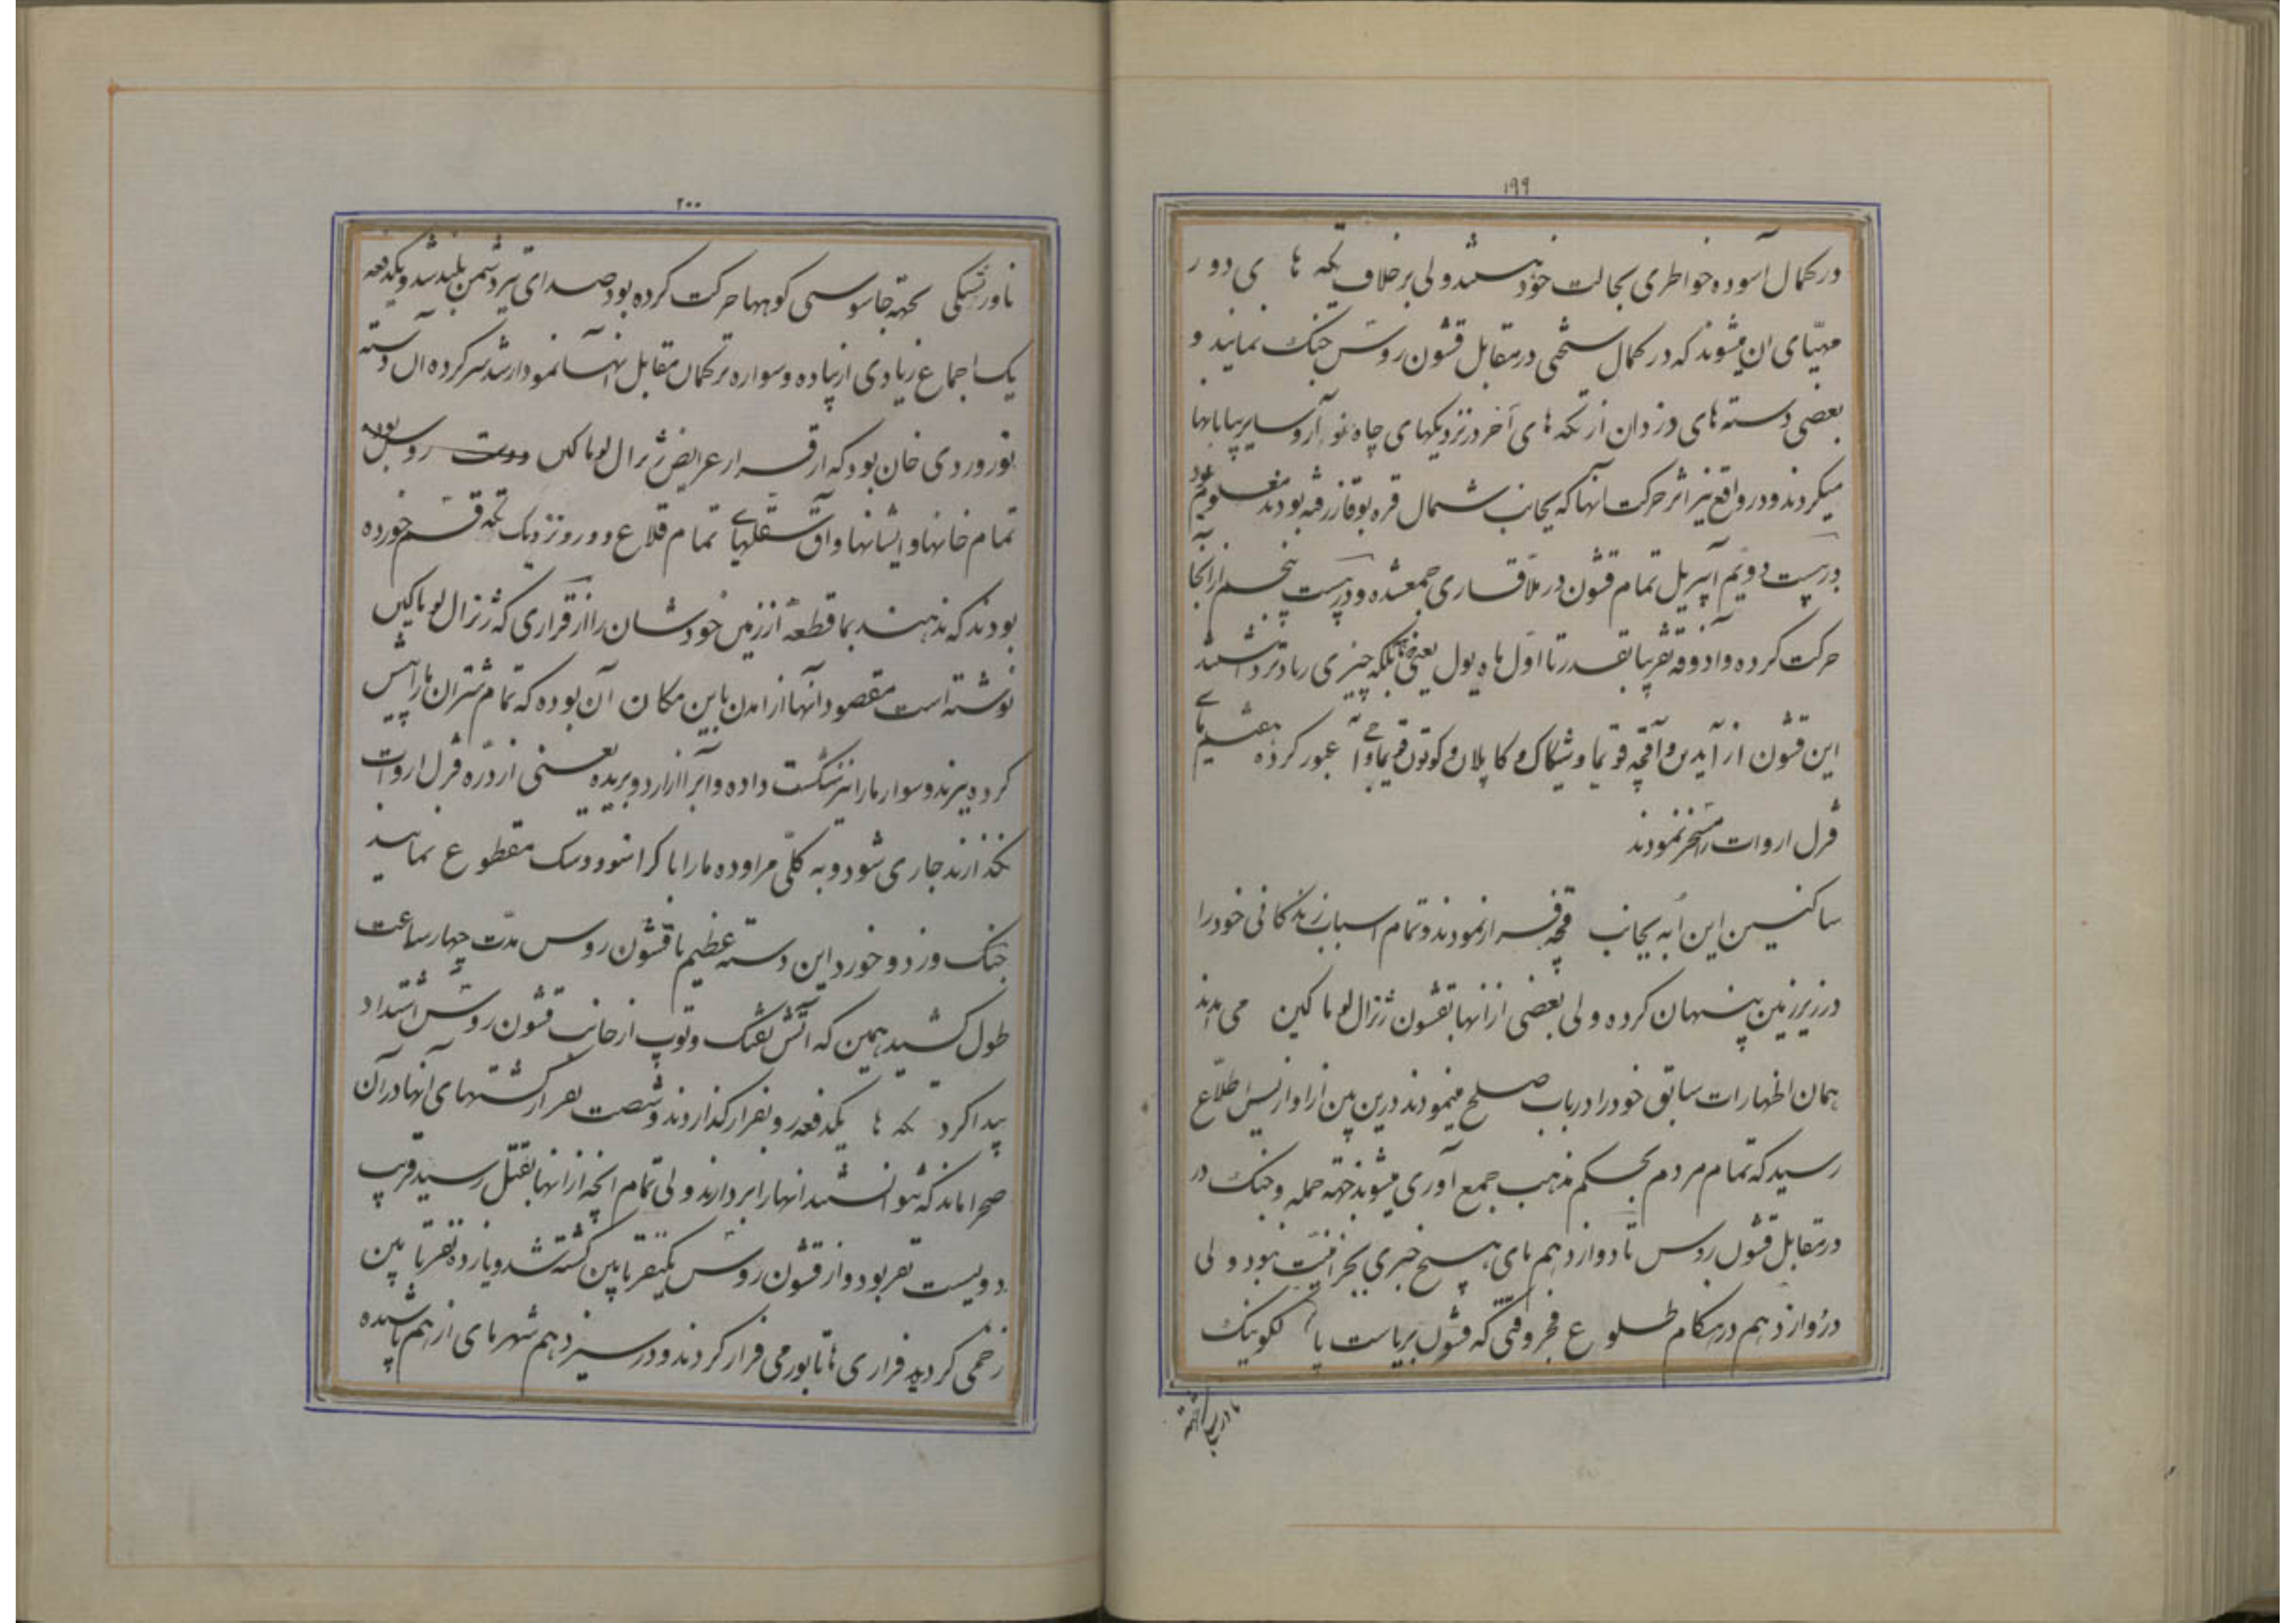 ۱۹۹
در کمال آسوده خواطری بحالت خود هستند ولی برخلاف تکه ها ی دور
مهیّای ان میشوند که در کمال سختی در مقابل قشون روس جنک نمایند و
بعضی دسته های دزدان از تکه های آخر در نزدیکهای چاه سایر بیابانها
میکردند و در واقع نیز اثر حرکت انها که بجانب شمال قره بوقاز رفته بودند معلوم بود
در بیست دویّم آپریل تمام قشون در ملاقاری جمعشده و در بیست پنجم از انجا
حرکت کرده و آذوقه تقریبا بقدر تا اوّل ماه یول یعنی بلکه چیزی زیادتر داشتند
این قشون از آیدین و آقچه قویما و کاپلان و عبور کرده هفتم مای
قزل اروات را مسخّر نمودند
ساکنین این اُبه بجانب فرار نمودند و تمام اسباب زندکانی خود را
در زیر زمین پنهان کرده ولی بعضی از انها بقشون ژنرال لوماکین می امدند
همان اظهارات سابق خود را در باب صلح مینمودند درین بین از اطلاع
رسید که تمام مردم بحکم مذهب جمع آوری میشوند جهة حمله و جنک در
در مقابل قشون روس تا دوازدهم مای هیچ خبری بجز امنیّت نبود ولی
در دوازدهم در هنکام طلوع فجر وقتی که قشون بریاست
۲۰۰
بجهة جاسوسی کوهها حرکت کرده بود صدای تیر دشمن بلند شد و یکدفعه
یک اجماع زیادی از پیاده و سواره ترکمان مقابل انها نمودار شد سرکرده آن دسته
نوروردی خان بود که از قرار عرایض ژنرال لوماکین روس بوده
تمام خانها و ایشانها و آق سقلهای تمام قلاع دور و نزدیک تکه قسم خورده
بودند که ندهند بما قطعهٔ از زمین خودشان را از قراری که ژنرال لوماکین
نوشته است مقصود آنها از امدن باین مکان آن بوده که تمام شتران ما را پیش
کرده ببرند و سوار ما را نیز شکست داده و آبرا از اردو بریده یعنی از درّه قزل اروات
نکذارند جاری شود و به کلّی مراوده ما را با کراسنوودسک مقطوع نمایند
جنک و زد و خورد این دسته عظیم با قشون روس مدّت چهار ساعت
طول کشید همین که آتش تفنک و توپ از جانب قشون روس اشتداد
پیدا کرد تکه ها یکدفعه رو بفرار کذاردند و شصت نفر از کشتهای انها در آن
صحرا ماند که نتوانستند انها را بردارند ولی تمام انچه از انها بقتل رسید قریب
دویست نفر بود و از قشون روس یکنفر تابین کشته شد و یازده نفر تابین
زخمی کردید فراری ها تا بورمی فرار کردند و در سیزدهم شهر مای از هم پاشیده